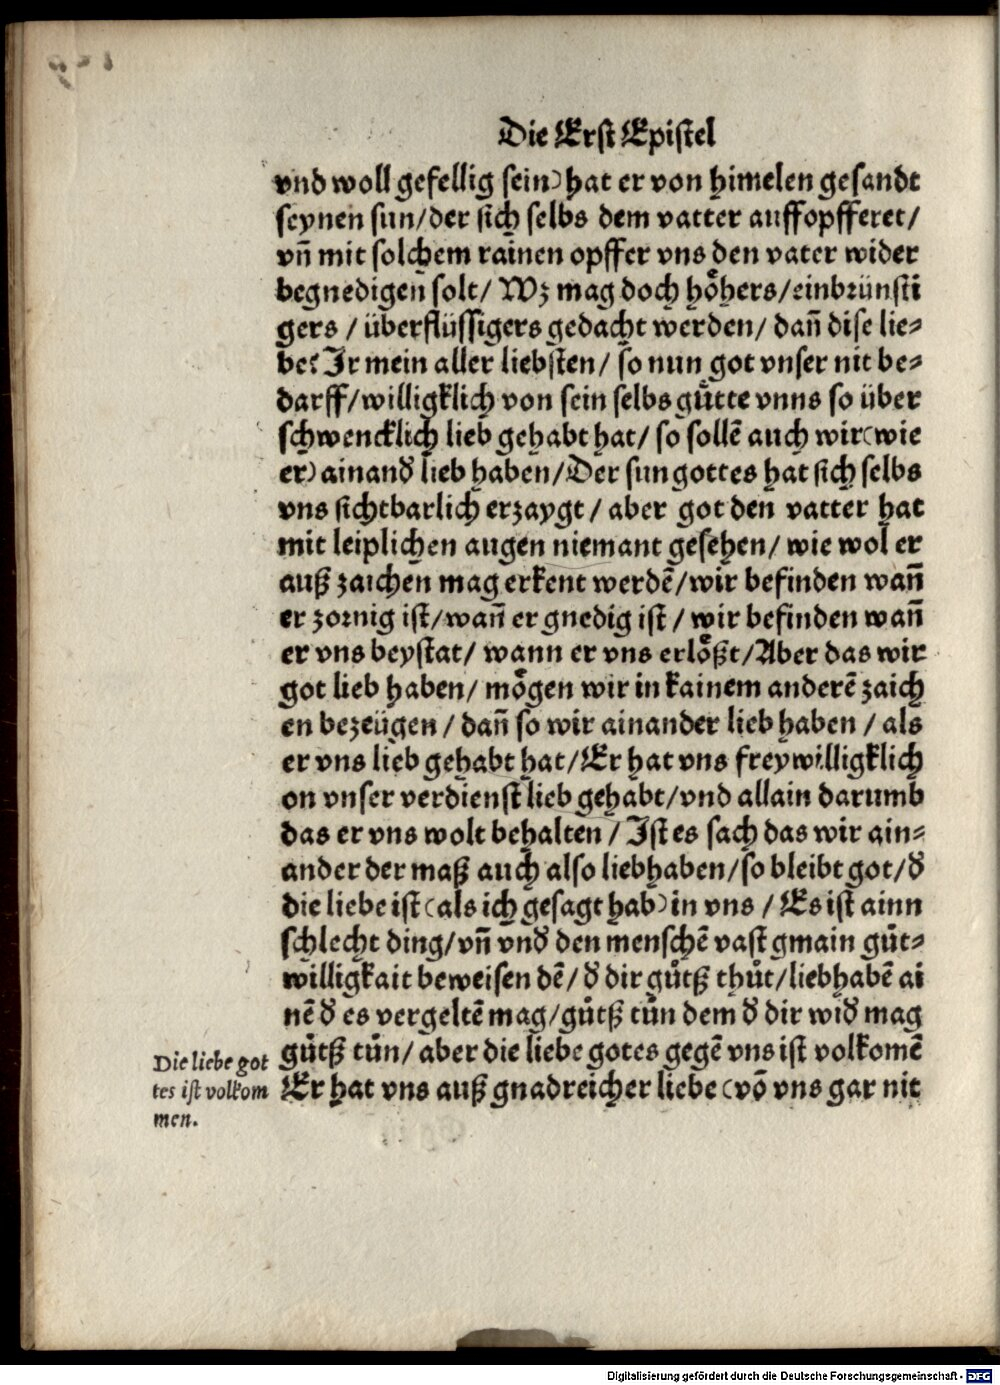 Die Erst Epistel
vnd woll gefellig sein) hat er von himelen gesandt
seynen sun/der sich selbs dem vatter auffopfferet/
vn̄ mit solchem rainen opffer vns den vater wider
begnedigen solt/ Wz mag doch hoͤhers/einbrünsti
gers / überflüssigers gedacht werden/ dan̄ dise lie⸗
be? Ir mein aller liebsten/ so nun got vnser nit be⸗
darff/willigklich von sein selbs guͤtte vnns so über
schwencklich lieb gehabt hat/ so sollē auch wir (wie
er) ainand̛ lieb haben/Der sun gottes hat sich selbs
vns sichtbarlich erzaygt/ aber got den vatter hat
mit leiplichen augen niemant gesehen/ wie wol er
auß zaichen mag erkent werdē/wir befinden wan̄
er zornig ist/wan̄ er gnedig ist / wir befinden wan̄
er vns beystat/ wann er vns erloͤßt/Aber das wir
got lieb haben/ moͤgen wir in kainem anderē zaich
en bezeügen / dan̄ so wir ainander lieb haben / als
er vns lieb gehabt hat/Er hat vns freywilligklich
on vnser verdienst lieb gehabt/vnd allain darumb
das er vns wolt behalten / Ist es sach das wir ain⸗
ander der maß auch also liebhaben/so bleibt got/d̛
die liebe ist (als ich gesagt hab) in vns / Es ist ainn
schlecht ding/vn̄ vnd̛ den menschē vast gmain guͤt⸗
willigkait beweisen dē/ d̛ dir guͤtß thuͤt/liebhabē ai
nē d̛ es vergeltē mag/guͤtß tuͤn dem d̛ dir wid̛ mag
guͤtß tuͤn/ aber die liebe gotes gegē vns ist volkomē
Er hat vns auß gnadreicher liebe (vō vns gar nit
Die liebe got
tes ist volkom
men.
Digitalisierung gefördert durch die Deutsche Forschungsgemeinschaft - DFG